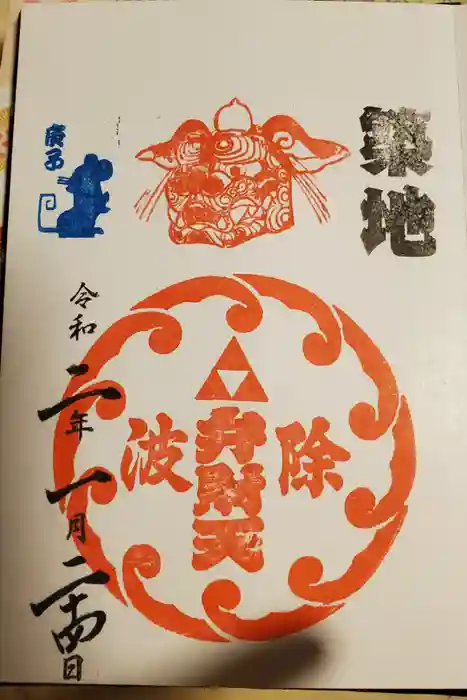 築地
庚子
除波
弁財天
令和二年一月二十四日